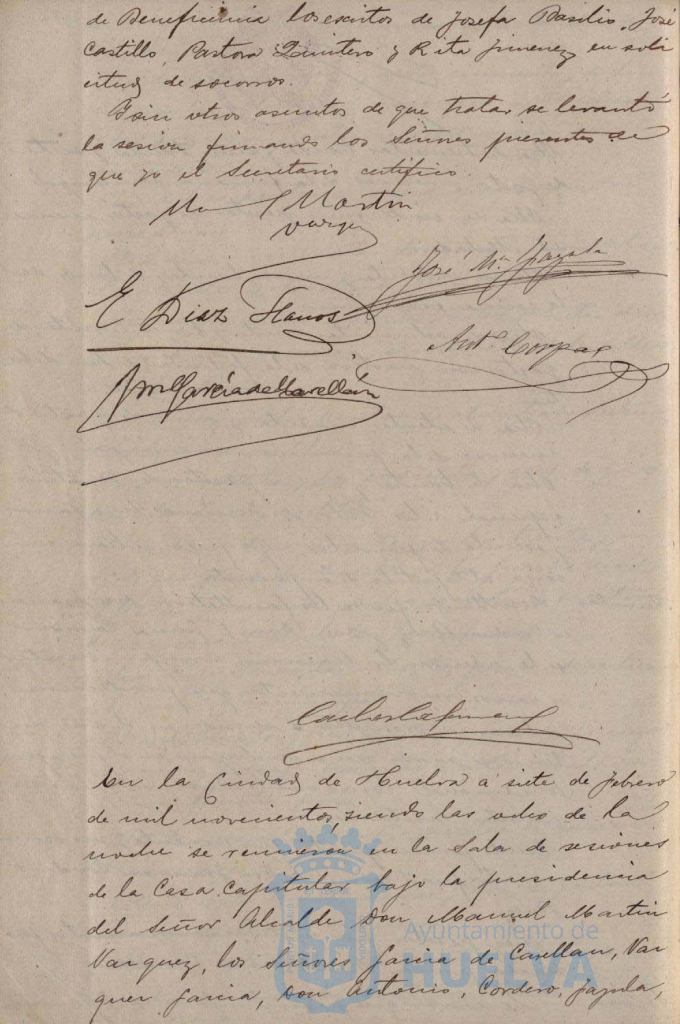 de Beneficencia los escritos de Josefa Basilio, José
Castillo, Pastora Quintero y Rita Jimenez en soli
citud de socorros.
Y sin otros asuntos de que tratar se levantó
la sesion firmando los Señores presentes de
que yo el Secretario certifico.
M Martin
Vazqz
José Mª Jzazala
E Diaz Llanos
Antº Corpas
Garcia de Carellán
En la Ciudad de Huelva á siete de febrero
de mil novecientos, siendo las ocho de la
noche se reunieron en la Sala de sesiones
de la Casa Capitular bajo la presidencia
del Señor Alcalde Don Manuel Martin
Vazquez, los Señores Garcia de Carellan, Vaz
quez Garcia, Don Antonio, Cordero,
Ayuntamiento de
HUELVA